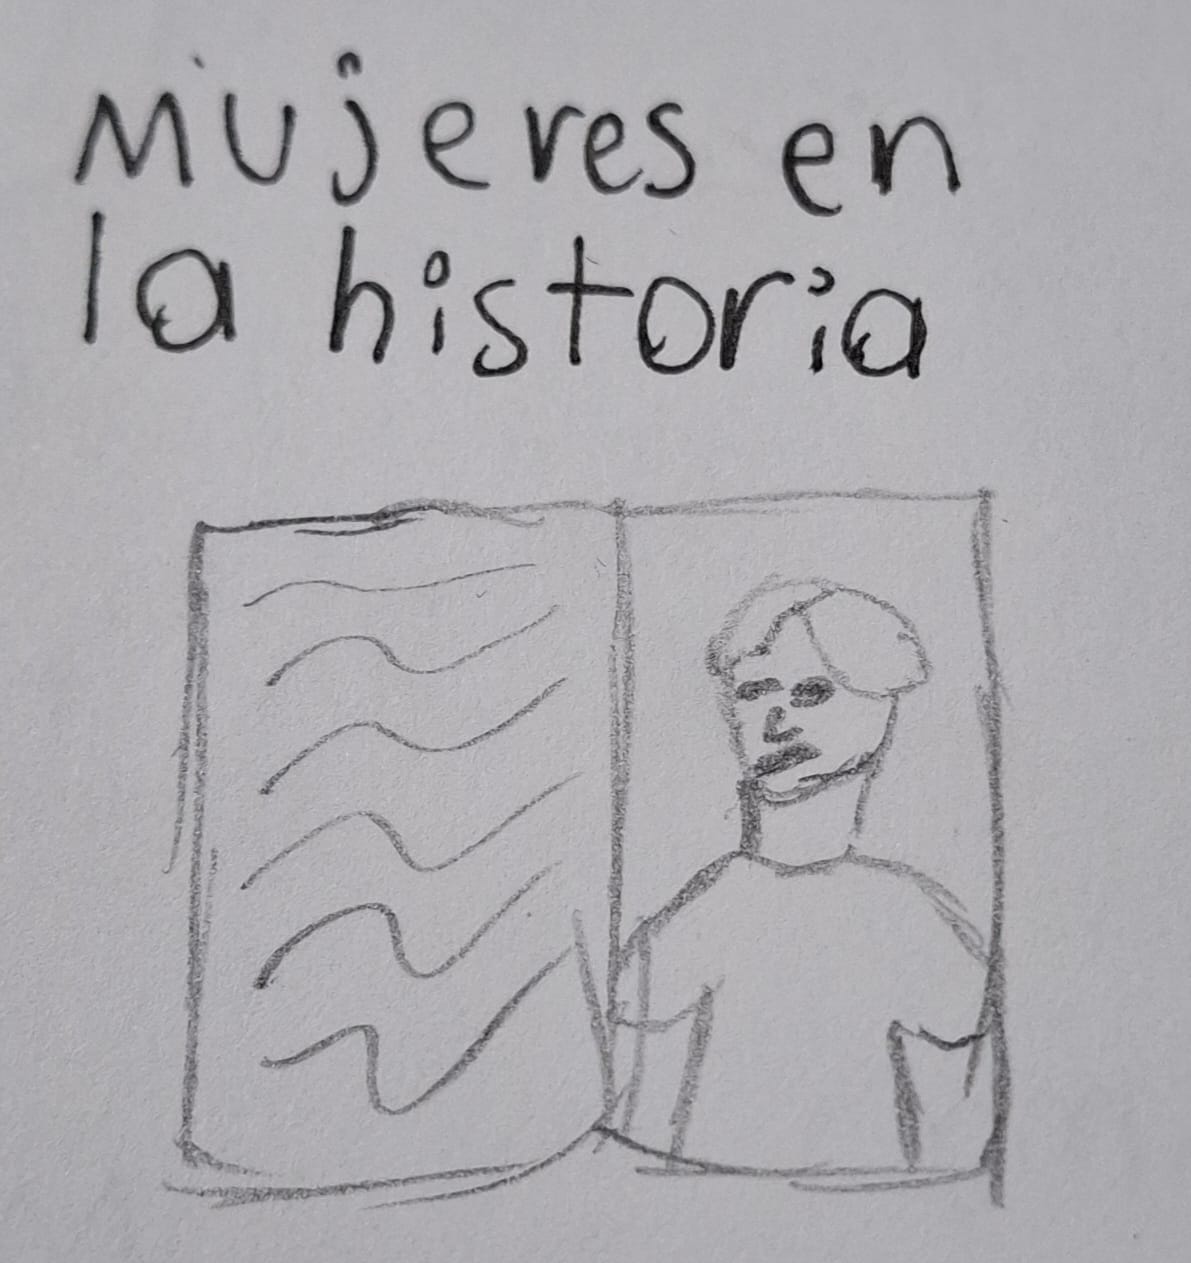 Mujeres en
la historia